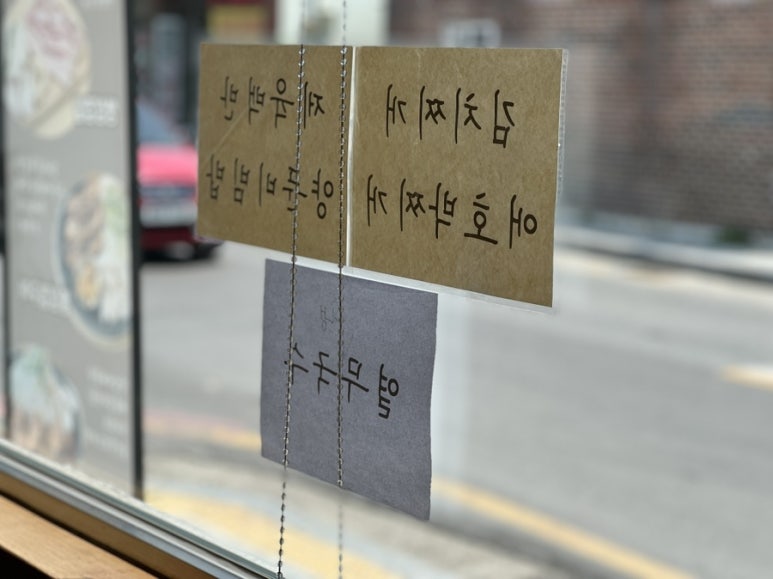 김치찌개
애호박찌개
제육백반
양푼비빔밥
열무국수